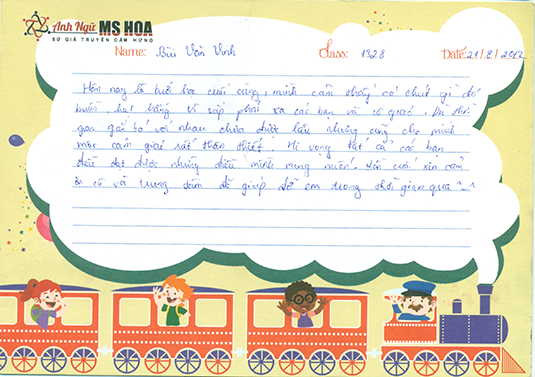 Anh Ngữ MS HOA
SỨ GIẢ TRUYỀN CẢM HỨNG
Name: Bùi Văn Vinh Class: 1328 Date: 21/8/2017
Hôm nay là buổi học cuối cùng, mình cảm thấy có chút gì đó
buồn, hụt hẫng vì sắp phải xa các bạn và cô giáo. Dù thời
gian gắn bó với nhau chưa được lâu nhưng cũng cho mình
một cảm giác rất thân thiết. Hi vọng tất cả các bạn
đều đạt được những điều mình mong muốn. Lời cuối xin cảm
ơn cô và trung tâm đã giúp đỡ em trong thời gian qua ^_^